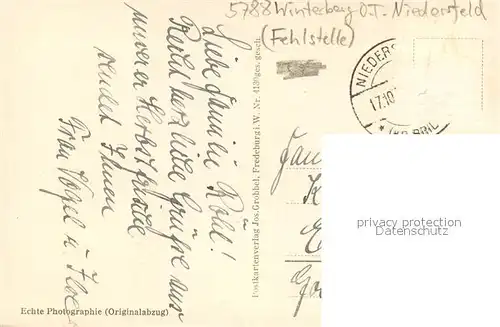 5788 Winterberg O.T. Niedersfeld
(Fehlstelle)
Liebe Familie Röhl!
Recht herzliche Grüße aus
unserer Herbstfrische
sendet Ihnen
Frau Vogel u. Ilse
Postkartenverlag Jos. Grobbel, Fredeburg i. W. Nr. 4139 ges. gesch.
NIEDERS
17.10.
Fam
privacy protection
Echte Photographie (Originalabzug)